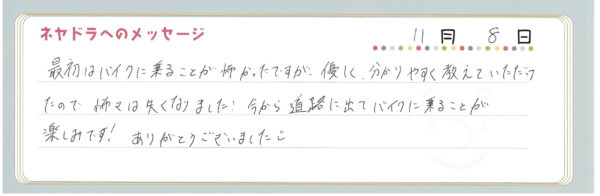 ネヤドラへのメッセージ 11月 8日
最初はバイクに乗ることが怖かったですが、優しく、分かりやすく教えていただけ
たので怖さは失くなりました!今から道路に出てバイクに乗ることが
楽しみです! ありがとうございました